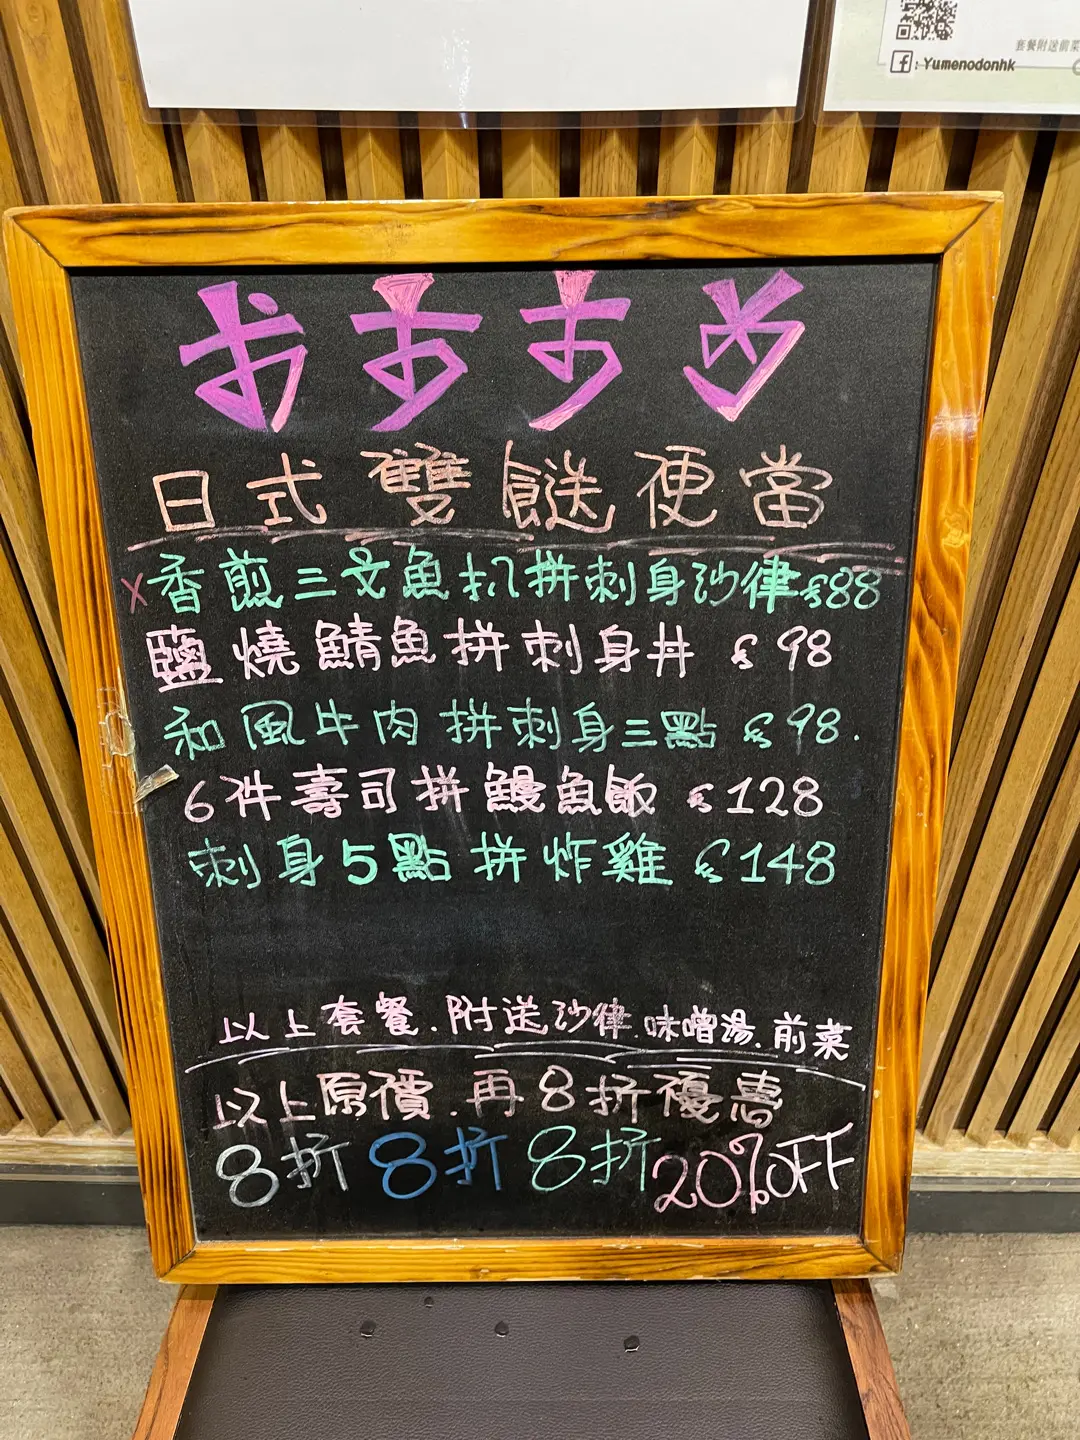 套餐附送前菜
f : Yumenodonhk
おすすめ
日式雙餸便當
x香煎三文魚扒拼刺身沙律$88
鹽燒鯖魚拼刺身丼 $98
和風牛肉拼刺身三點 $98.
6件壽司拼鰻魚飯 $128
刺身5點拼炸雞 $148
以上套餐.附送沙律.味噌湯.前菜
以上原價.再8折優惠
8折 8折 8折 20%OFF